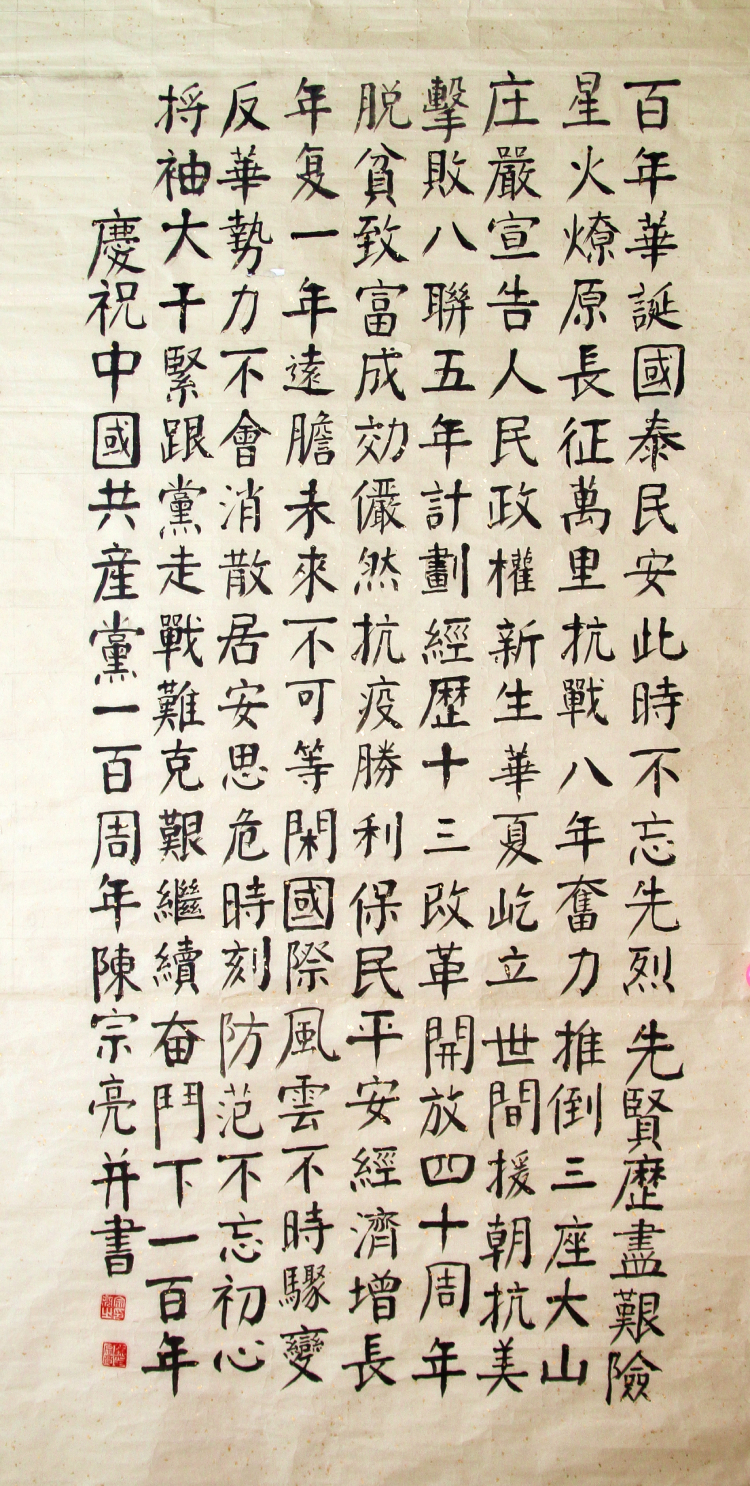 百年華誕國泰民安此時不忘先烈先賢歷盡艱險
星火燎原長征萬里抗戰八年奮力推倒三座大山
庄嚴宣告人民政權新生華夏屹立世間援朝抗美
擊敗八聯五年計劃經歷十三改革開放四十周年
脱貧致富成効儼然抗疫勝利保民平安經濟增長
年复一年遠膽未來不可等閑國際風雲不時驟變
反華勢力不會消散居安思危時刻防范不忘初心
捋袖大干緊跟黨走戰難克艱繼續奋鬥下一百年
慶祝中國共産黨一百周年陳宗亮并書